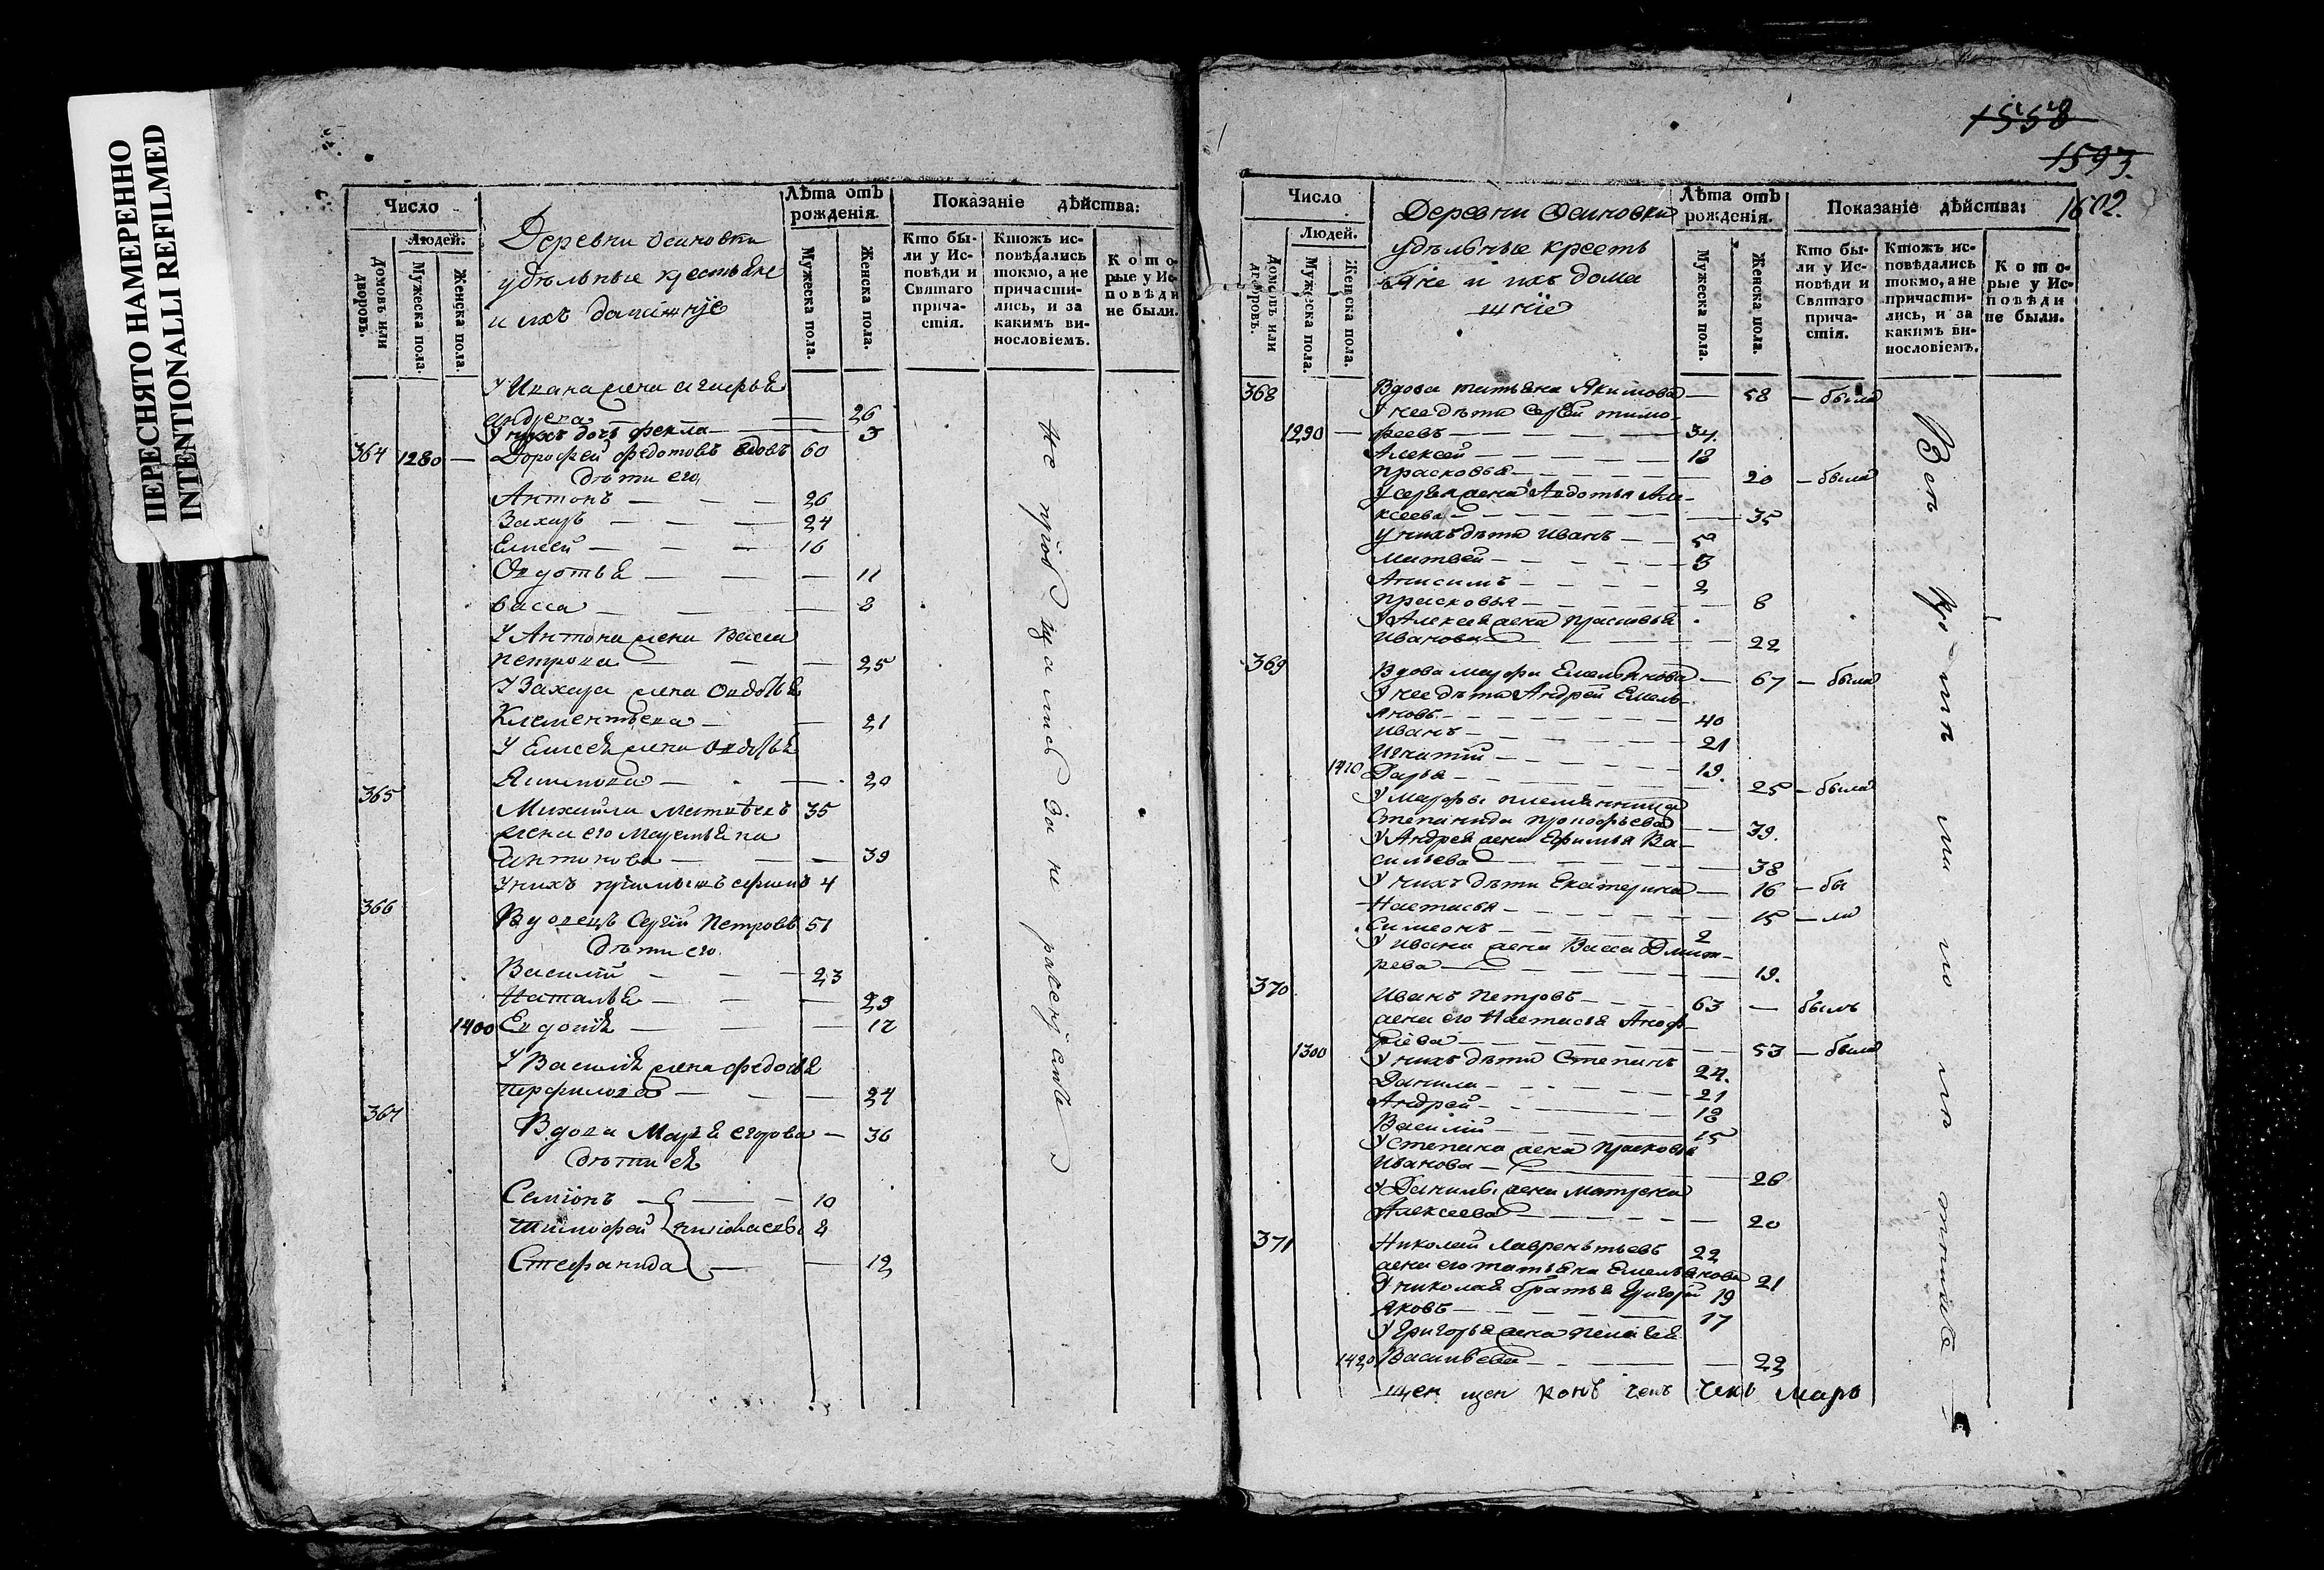 ПЕРЕСНЯТО НАМЕРЕННО
INTENTIONALLI REFILMED
Число
Людей.
Домовъ или дворовъ.
Мужеска пола.
Женска пола.
Деревни Осиновки
удѣльные крестьяне
и ихъ домашнiе
Лѣта отъ рожденія.
Мужеска пола.
Женска пола.
Показаніе дѣйства:
Кто были у Исповѣди и Святаго причастія.
Ктожъ исповѣдались токмо, а не причастились, и за какимъ винословіемъ.
Которые у Исповѣди не были.
У Ивана жена
26
У нихъ дочь фекла — 3
364 1280 — Дорофей федотовъ вдовъ 60
дѣти его
Антонъ — 26
Захаръ — 24
Елисей — 16
Овдотья — 11
васса — 8
У Антона жена Васса
петрова — 25
У Захара жена Овдотья
Клементьева — 21
У Елисея жена Овдотья
— 20
365 Михайла Матвѣевъ 35
жена его
Антонова — 39
У нихъ 4
366 Вдовецъ Сергiй Петровъ 51
дѣти его
Василiй — 23
Наталья — 29
1400 Евдокiя — 12
У Василiя жена федосья
перфилова — 24
367 Вдова Марья егорова — 36
дѣти ея
Семiонъ — 10
тимофей 8
Стефанида — 12
не
за не
1558
1593.
1602.
Число
Людей.
Домовъ или дворовъ.
Мужеска пола.
Женска пола.
Деревни Осиновки
удѣльные кресть
яне и ихъ дома
шнiе
Лѣта отъ рожденія.
Мужеска пола.
Женска пола.
Показаніе дѣйства:
Кто были у Исповѣди и Святаго причастія.
Ктожъ исповѣдались токмо, а не причастились, и за какимъ винословіемъ.
Которые у Исповѣди не были.
368 Вдова татьяна Якимова — 58 — была
У нее дѣти Сергѣй тимо-
1290 — феевъ — 34.
Алексѣй — 18
прасковья — 20 — была
У сергѣя жена Авдотья Але-
ксеева — 35
У нихъ дѣти Иванъ — 5
Матвей — 3
Анисимъ — 2
прасковья — 8
У Алексея жена прасковья
Иванова — 22
369 Вдова марфа Емельянова — 67 — была
У нее дѣти Андрей Емель-
яновъ — 40
Иванъ — 21
Игнатiй — 19.
1410 Дарья — 25 — была
У марфы племянница
Степанида прокофьева — 39.
У Андрея жена Ефимья Ва-
сильева — 38
У нихъ дѣти Екатерина — 16 — бы
Настасья — 15 — ли
Симеонъ — 2
У ивана жена Васса Дмит-
рева — 19.
370 Иванъ Петровъ — 63 — былъ
жена его Настасья Аноф-
рiева — 53 — была
1300 У нихъ дѣти Степанъ 24.
Данила — 21
Андрей — 18
Василiй — 15
У степана жена прасковья
Иванова — 26
У Данилы жена матрена
Алексеева — 20
371 Николай Лаврентьевъ 22
жена его татьяна Емельянова 21
У николая братья Григорiй 19
Яковъ — 17
У Григорья жена пелагея
1420 Васильева — 22
щен